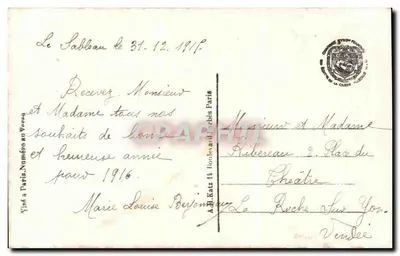 Le Sableau le 31-12-1915
Recevez Monsieur
et Madame tous nos
souhaits de bonne
et heureuse année
pour 1916
Marie Louise
Visé à Paris. Numéro au Verso
A.H. Katz 14 Boulevard Barbès Paris
Monsieur et Madame
Ribereau 2. Place du
Théâtre
La Roche Sur Yon
Vendée